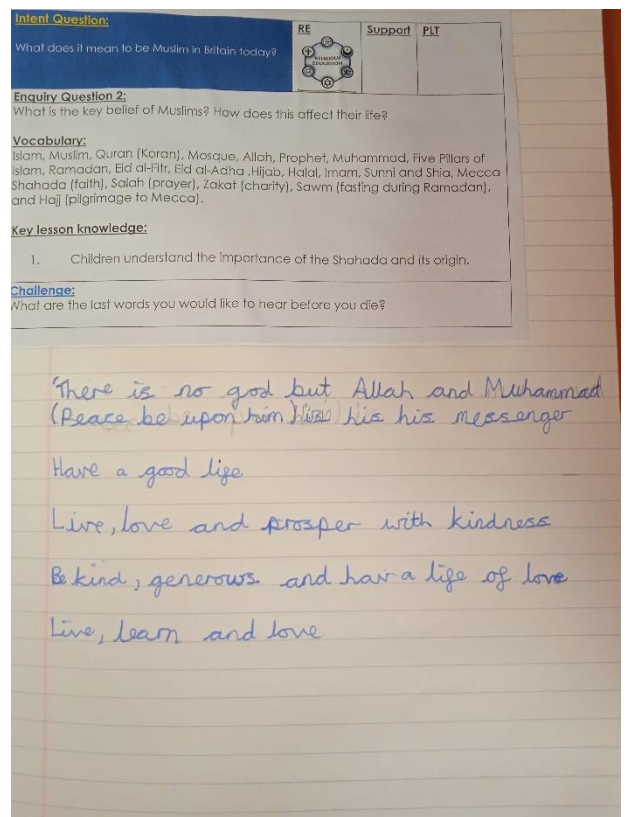 Intent Question:
What does it mean to be Muslim in Britain today?
RE
RELIGIOUS
EDUCATION
Support
PLT
Enquiry Question 2:
What is the key belief of Muslims? How does this affect their life?
Vocabulary:
Islam, Muslim, Quran (Koran), Mosque, Allah, Prophet, Muhammad, Five Pillars of
Islam, Ramadan, Eid al-Fitr, Eid al-Adha ,Hijab, Halal, Imam, Sunni and Shia, Mecca
Shahada (faith), Salah (prayer), Zakat (charity), Sawm (fasting during Ramadan),
and Hajj (pilgrimage to Mecca).
Key lesson knowledge:
1. Children understand the importance of the Shahada and its origin.
Challenge:
What are the last words you would like to hear before you die?
'There is no god but Allah and Muhammad
(Peace be upon him) his his messenger
Have a good life
Live, love and prosper with kindness
Be kind, generows. and hav a life of love
Live, learn and love